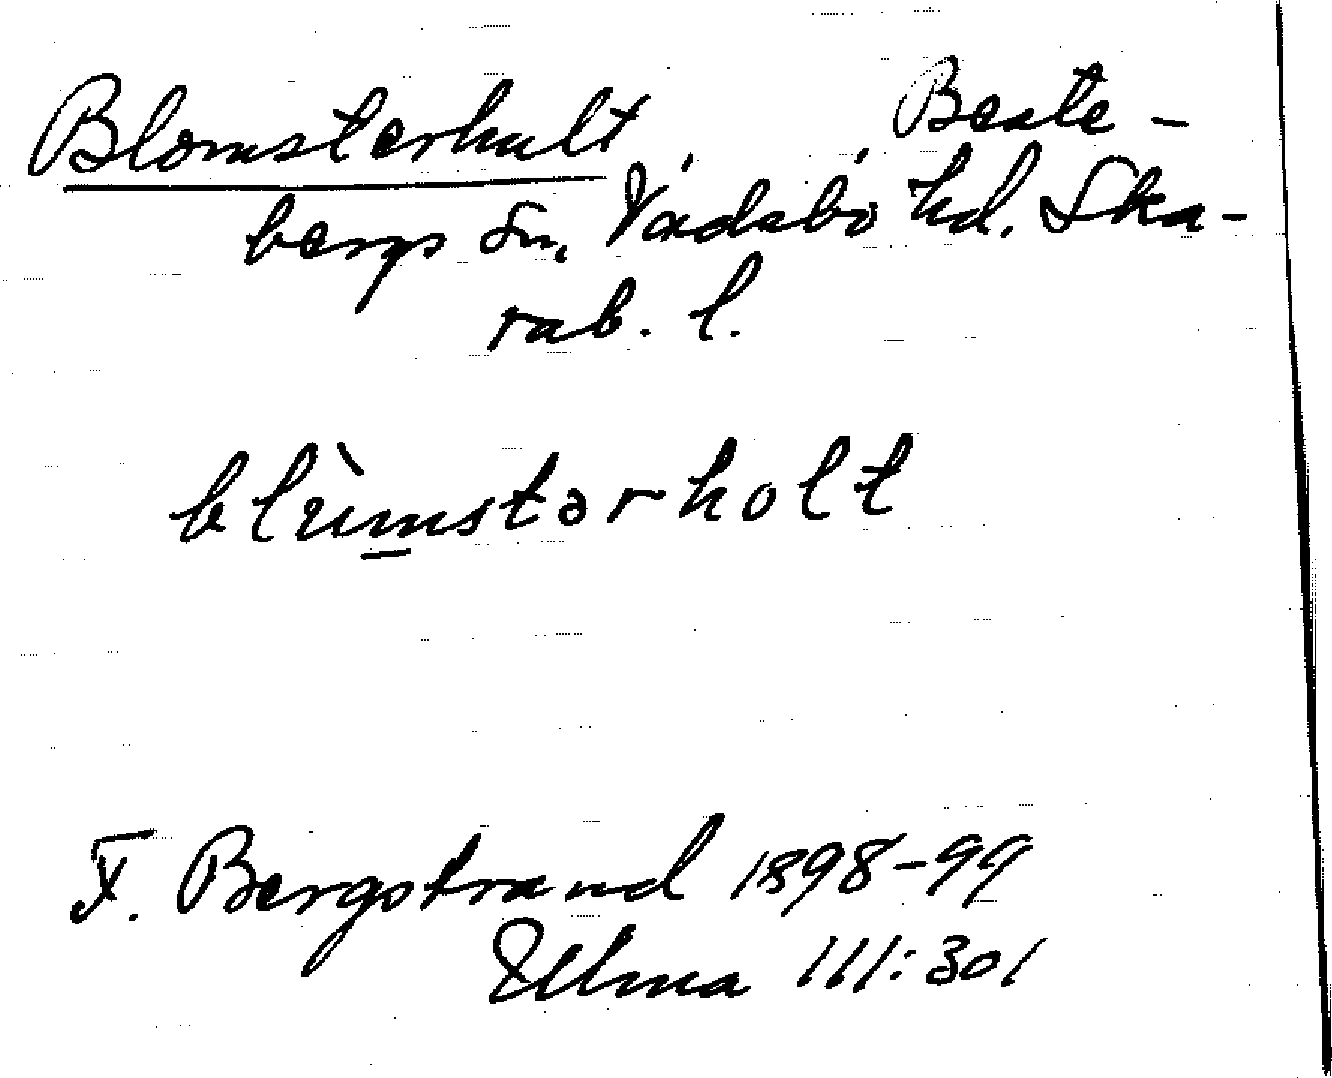 Blomsterhult, Beate-
bergs sn, Vadsbo hd. Ska-
rab. l.
blùmstərholt
F. Bergstrand 1898-99
Ulma 111:301